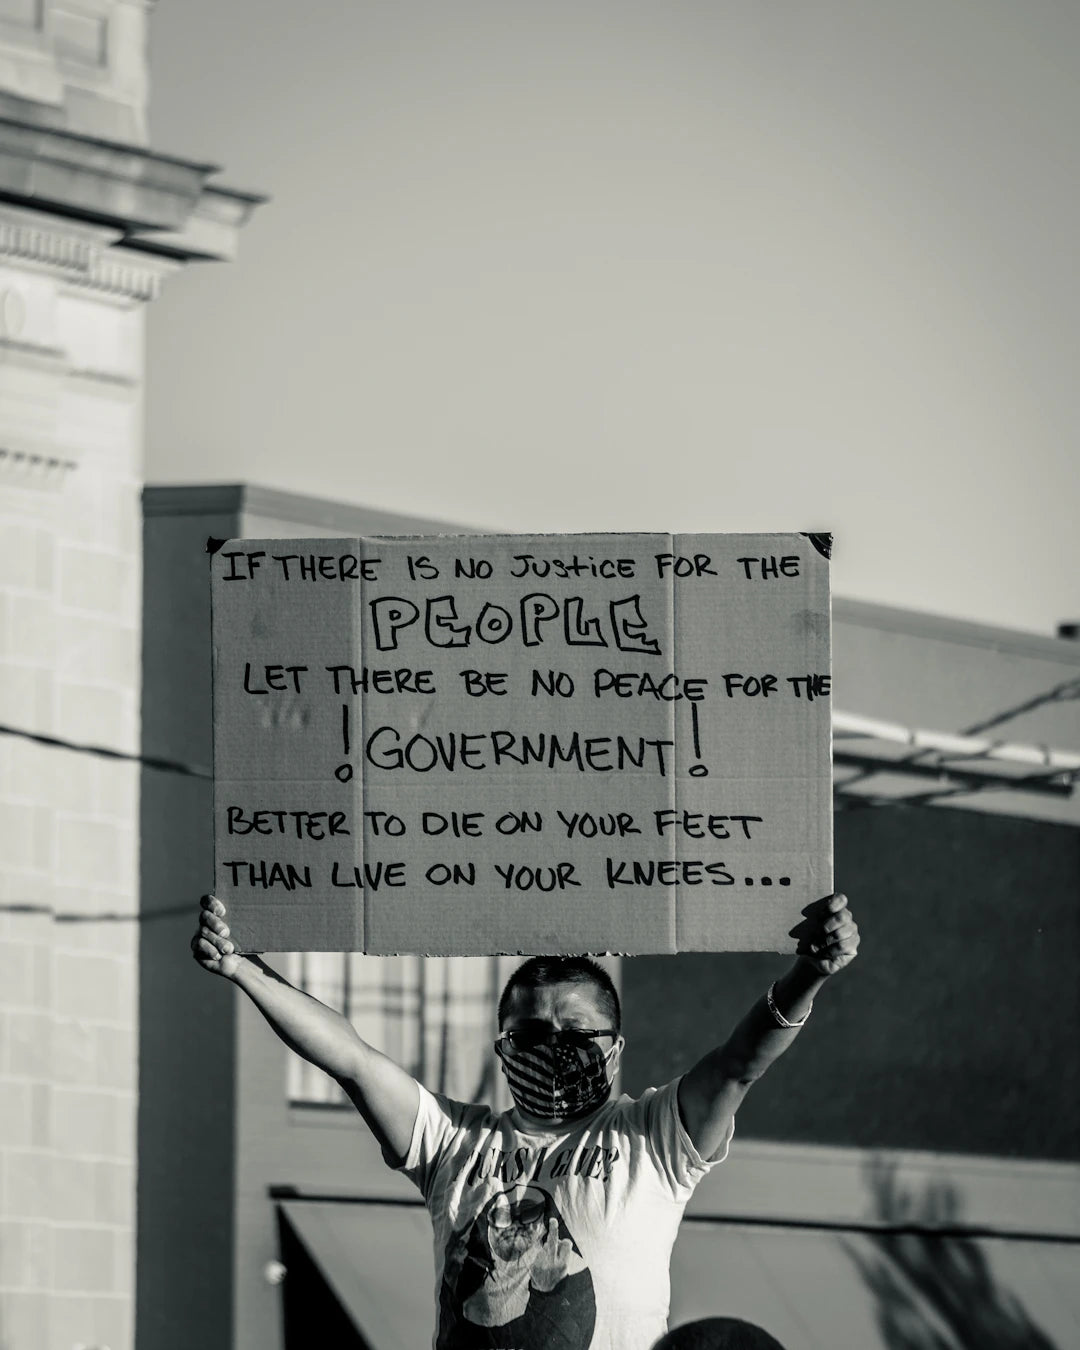 IF THERE IS NO JUSTICE FOR THE
PEOPLE
LET THERE BE NO PEACE FOR THE
! GOVERNMENT !
BETTER TO DIE ON YOUR FEET
THAN LIVE ON YOUR KNEES...
I GIVE?